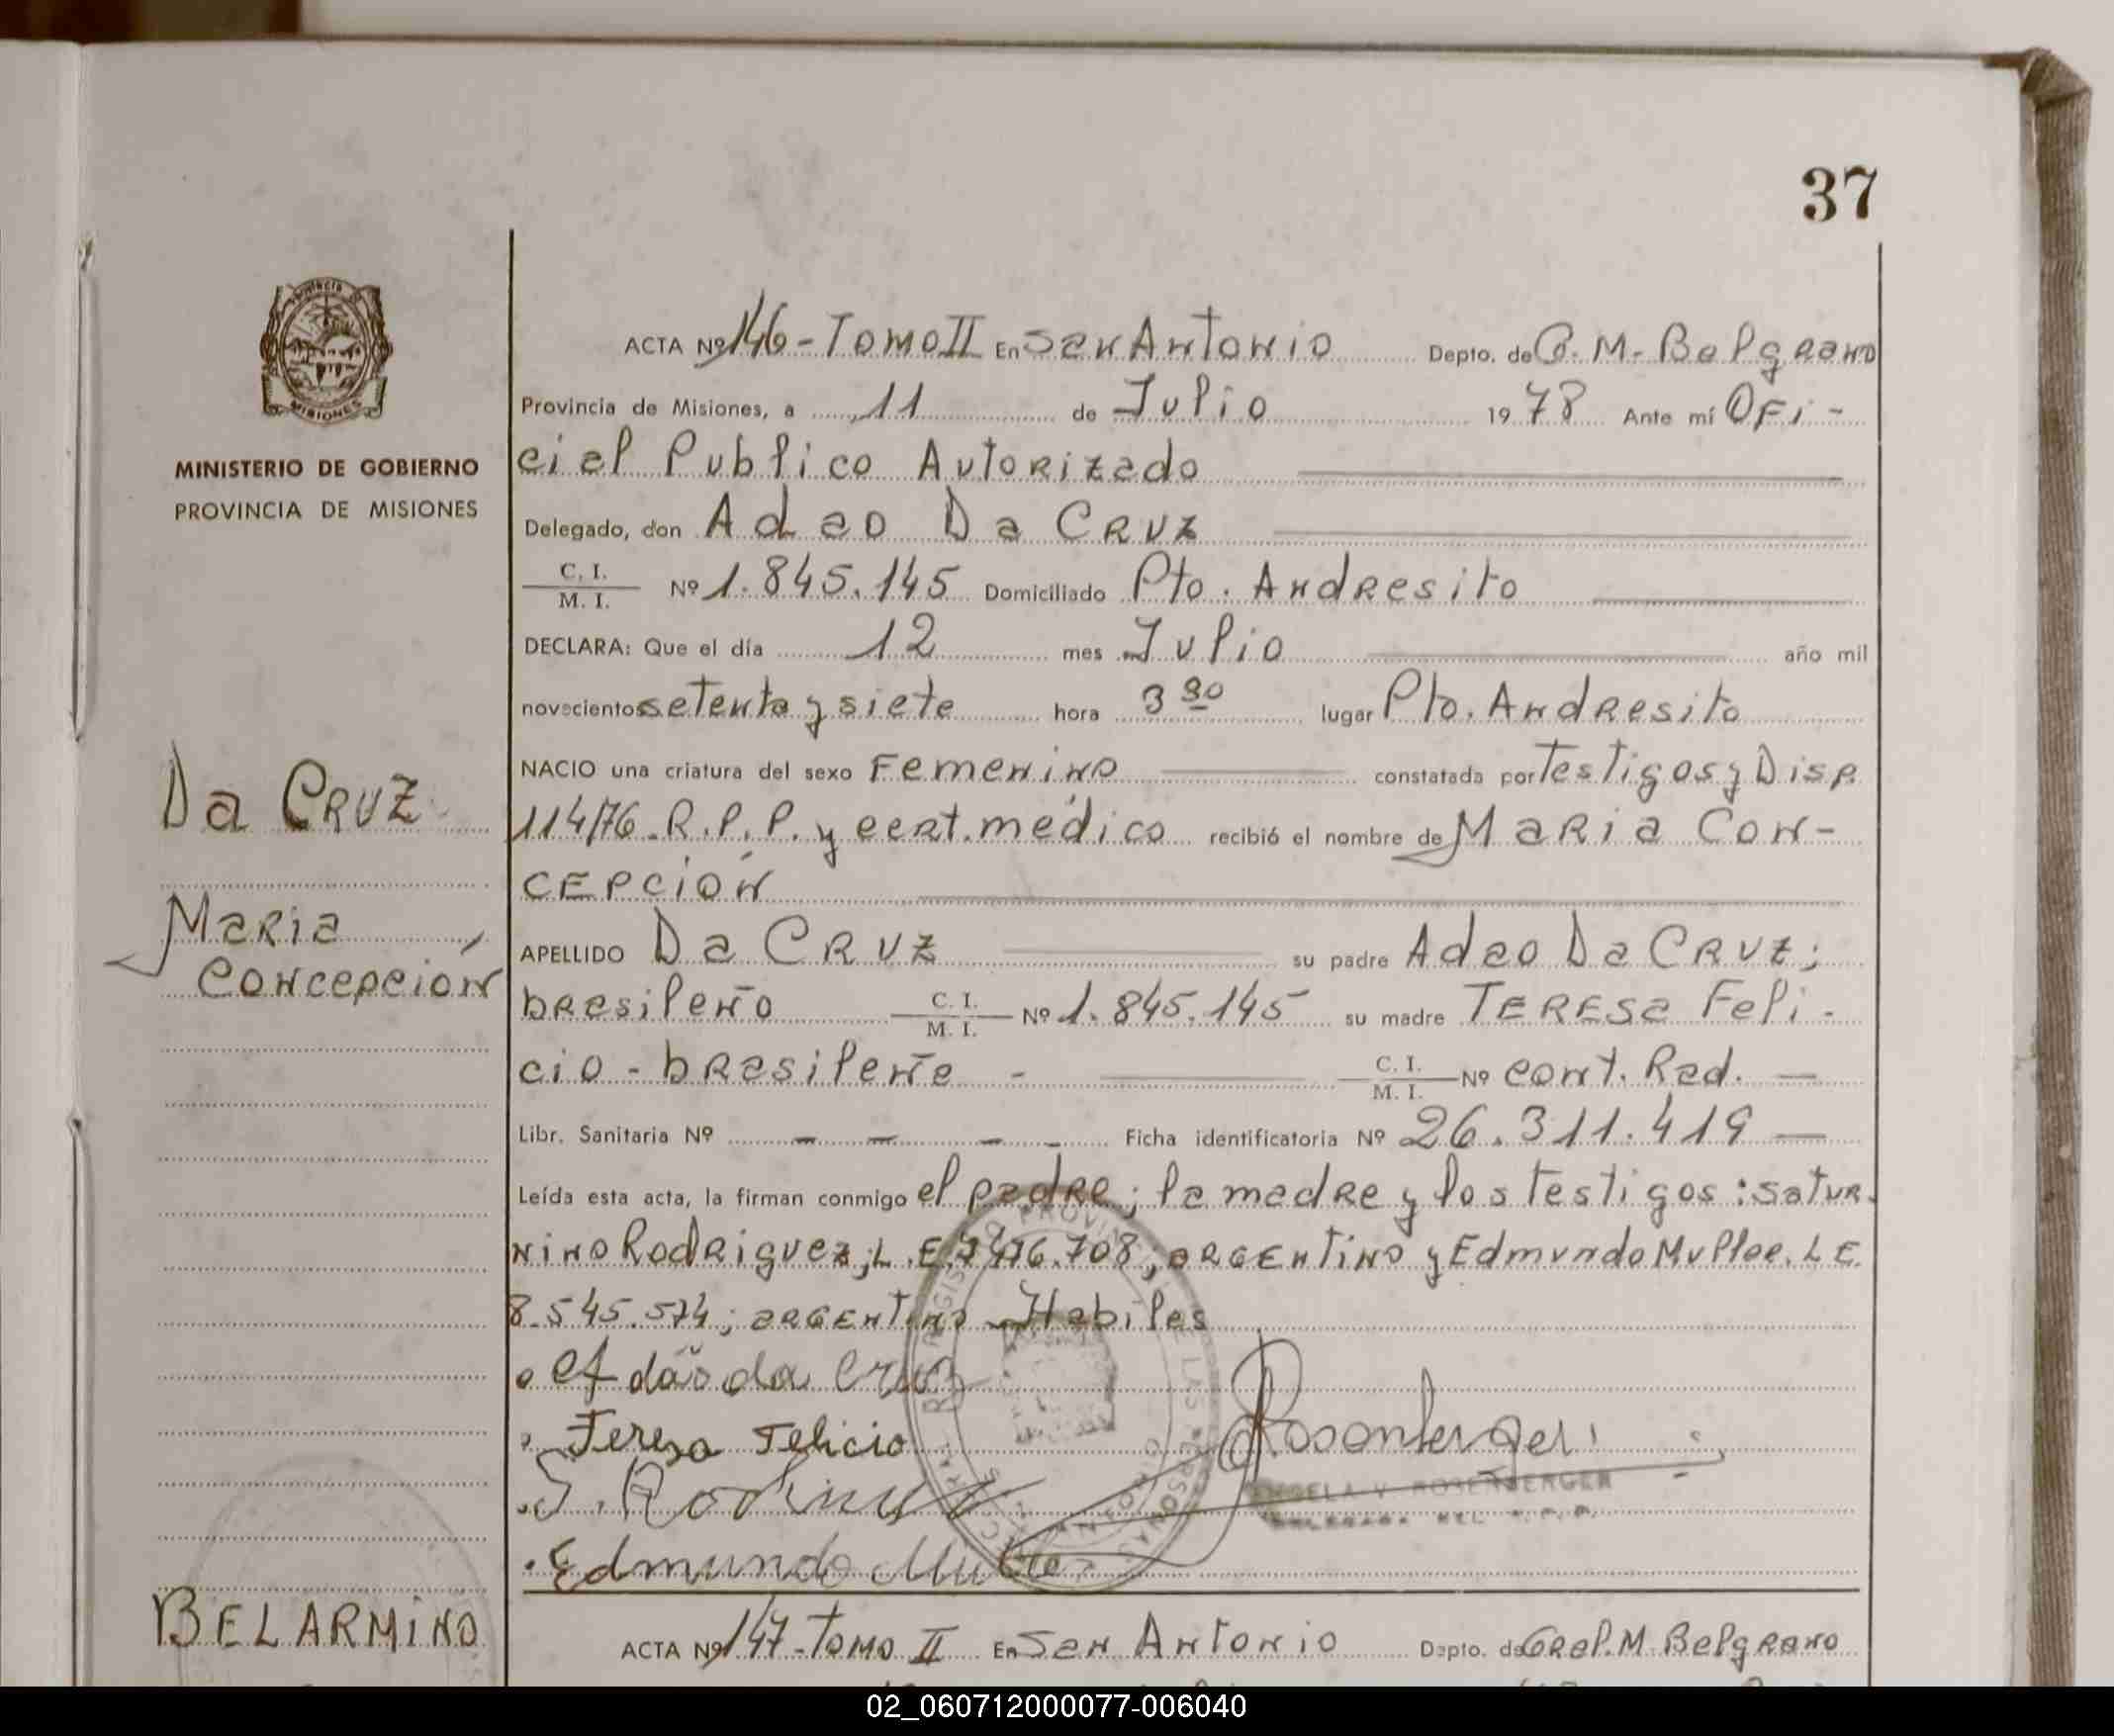 37
MISIONES
MINISTERIO DE GOBIERNO
PROVINCIA DE MISIONES
Da CRUZ
MaRia
concepción
BELARMINO
ACTA Nº 146 - Tomo II En San Antonio Depto. de G. M. Belgrano
Provincia de Misiones, a 11 de Julio 1978 Ante mí OFi-
cial Publico Autorizado
Delegado, don Adao Da CRUZ
C. I. / M. I. Nº 1.845.145 Domiciliado Pto. Andresito
DECLARA: Que el día 12 mes Julio año mil
novecientos setenta y siete hora 3 30 lugar Pto. Andresito
NACIO una criatura del sexo Femenino constatada por Testigos y Disp.
114/76. R.P.P. y cert. médico recibió el nombre de MaRia Con-
CEPCIÓN
APELLIDO Da CRUZ su padre Adao Da CRUZ;
brasileño C. I. / M. I. Nº 1.845.145 su madre TERESa Feli-
cio - brasileña - C. I. / M. I. Nº cont. Rad. —
Libr. Sanitaria Nº - - - - Ficha identificatoria Nº 26.311.419 —
Leída esta acta, la firman conmigo el padre; la madre y los testigos: satur-
nino Rodriguez; L.E. 7.476.708; argentino y Edmundo Muller. L E.
8.545.574; argentino - Habiles
Adão da Cruz
Teresa Felicio
S. Rodriguez
Rosenberger
ANGELA V. ROSENBERGER
DELEGADA DEL R.P.P.
Edmundo Muller
ACTA Nº 147 - Tomo II En San Antonio Depto. de Gral. M. Belgrano
02_060712000077-006040